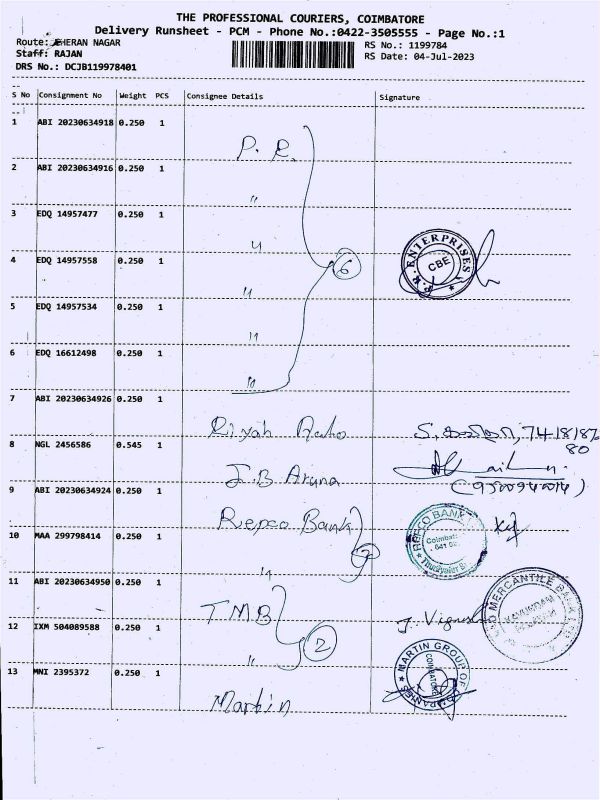 THE PROFESSIONAL COURIERS, COIMBATORE
Delivery Runsheet - PCM - Phone No.:0422-3505555 - Page No.:1
Route: EHERAN NAGAR
RS No.: 1199784
Staff: RAJAN
RS Date: 04-Jul-2023
DRS No.: DCJB119978401
S No Consignment No Weight PCS Consignee Details Signature
1 ABI 20230634918 0.250 1
P. R.
2 ABI 20230634916 0.250 1
"
3 EDQ 14957477 0.250 1
"
P.R. ENTERPRISES
CBE
4 EDQ 14957558 0.250 1
6
"
5 EDQ 14957534 0.250 1
"
6 EDQ 16612498 0.250 1
"
7 ABI 20230634926 0.250 1
8 NGL 2456586 0.545 1
J.B Aruna
9 ABI 20230634924 0.250 1
Repco Bank
REPCO BANK
10 MAA 299798414 0.250 1
"
11 ABI 20230634950 0.250 1
MERCANTILE BANK
T.M.B
J. Vignesh
12 IXM 504089588 0.250 1
2
"
MARTIN GROUP OF
COIMBATORE
13 MNI 2395372 0.250 1
Martin